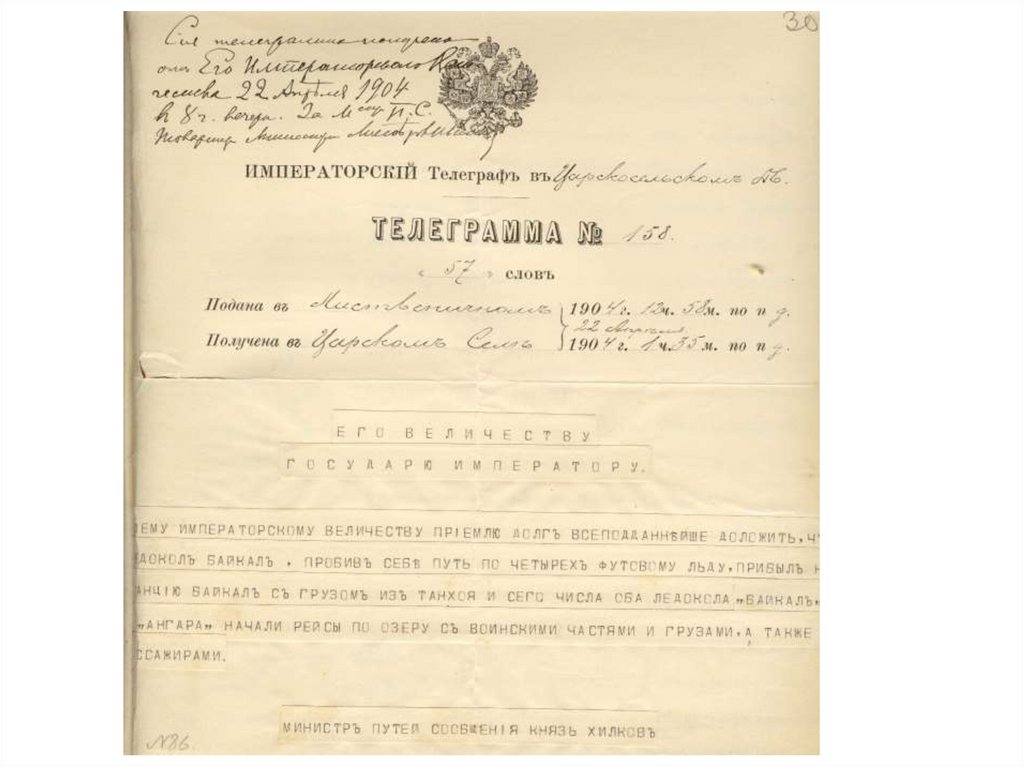 30
Сія телеграмма получена
отъ Его Императорскаго Вели
чества 22 Апрѣля 1904
в 8 ч. вечера. За М П. С.
Товарищ Министра
ИМПЕРАТОРСКІЙ Телеграфъ въ Царскосельскомъ Дв.
ТЕЛЕГРАММА № 158.
« 57 » словъ
Подана въ Лиственичномъ 1904 г. 12 ч. 58 м. по п д.
22 Апрѣля
Получена въ Царскомъ Селѣ 1904 г. 1 ч. 35 м. по п д.
ЕГО ВЕЛИЧЕСТВУ
ГОСУДАРЮ ИМПЕРАТОРУ.
ЕМУ ИМПЕРАТОРСКОМУ ВЕЛИЧЕСТВУ ПРІЕМЛЮ ДОЛГЪ ВСЕПОДДАННѢЙШЕ ДОЛОЖИТЬ, Ч
ДОКОЛЪ БАЙКАЛЪ , ПРОБИВ СЕБѢ ПУТЬ ПО ЧЕТЫРЕХЪ ФУТОВОМУ ЛЬДУ, ПРИБЫЛЪ Н
АНЦІЮ БАЙКАЛЪ СЪ ГРУЗОМЪ ИЗЪ ТАНХОЯ И СЕГО ЧИСЛА ОБА ЛЕДОКОЛА „БАЙКАЛЪ„
„АНГАРА„ НАЧАЛИ РЕЙСЫ ПО ОЗЕРУ СЪ ВОИНСКИМИ ЧАСТЯМИ И ГРУЗАМИ, А ТАКЖЕ
ССАЖИРАМИ.
МИНИСТРЪ ПУТЕЙ СООБЩЕНІЯ КНЯЗЬ ХИЛКОВЪ
№86.